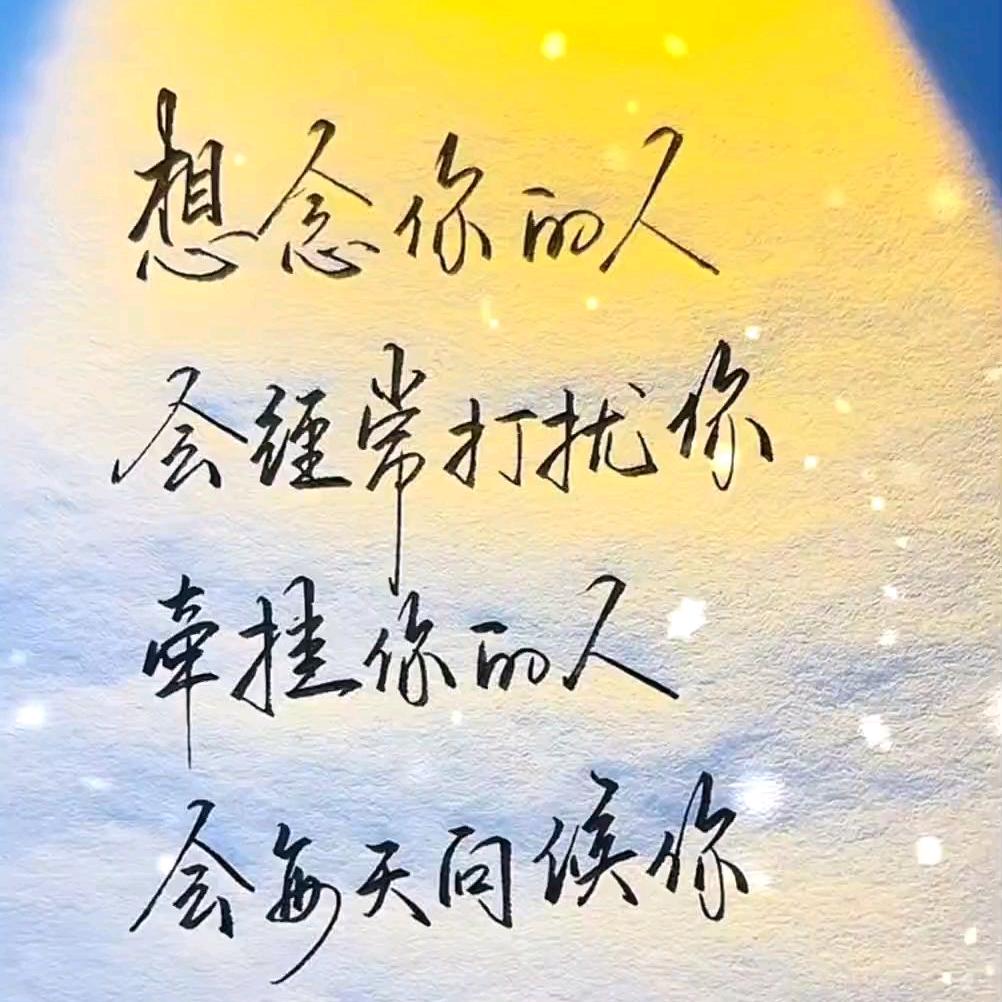 想念你的人
会经常打扰你
牵挂你的人
会每天问候你